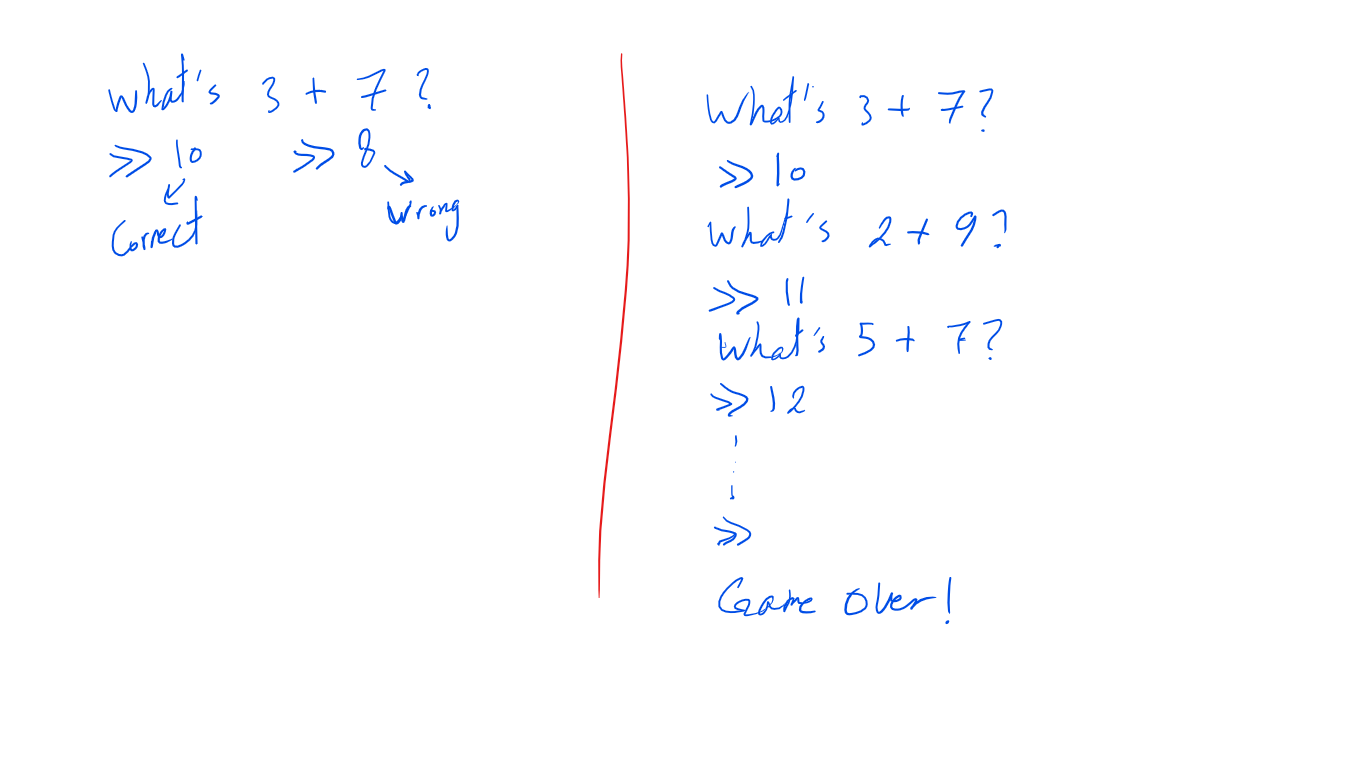 What's 3 + 7 ?
>> 10 >> 8
Correct
Wrong
What's 3 + 7?
>> 10
What's 2 + 9?
>> 11
What's 5 + 7?
>> 12
>>
Game Over!